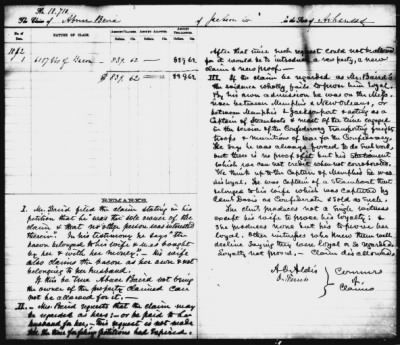 No. 10,710.
The Claim of Abner Baird of Jackson Co in the State of Arkansas
No. NATURE OF CLAIM. AMOUNT CLAIMED. AMOUNT ALLOWED. AMOUNT DISALLOWED.
Dolls. Cts. Dolls. Cts. Dolls. Cts.
1862
1 6107 lbs of Bacon 889 62 — 889 62
$ 889. 62 — 889 62
REMARKS.
I. Mr. Baird filed the claim stating in his
petition that he was the sole owner of the
claim & that no other person was interested
therein. In his testimony he says "the
bacon belonged to his wife & was bought
by her & with her money". — his wife
also claims the bacon as her own & not
belonging to her husband.
If this be true Abner Baird not being
the owner of the property claimed can
not be allowed for it. —
II. — Mrs. Baird requests that the claim may
be regarded as hers — or be paid to her
husband for her, — this request is not made
till the time for filing petitions had expired.
After that time such request could not be allowed
for it would be to introduce a new party, a new
claim & new proof. —
III. If the claim be regarded as Mr. Baird's
the evidence wholly fails to prove him loyal.
By his own admission he was on the Miss.
river between Memphis & New Orleans, or
between Memphis & Jacksonport & acting as a
Captain of steamboats & most of the time engaged
in the service of the Confederacy transporting freight
troops & munitions of war for the Confederacy.
He says he was always forced to do such work,
but there is no proof of it but his statement
which we can not credit when not corroborated.
We think up to the Capture of Memphis he was
disloyal. He was Captain of a Steamboat that
belonged to his wife which was captured by
Gunboats as Confederate & sold as such.
The claimt produces not a single witness
except his wife to prove his loyalty; &
She produces none but his to prove her
loyal. Other witnesses who knew them well
decline saying they were loyal or so regarded.
Loyalty not proved, — Claim disallowed
A. O. Aldis
O. Ferriss
Commrs
of
Claims